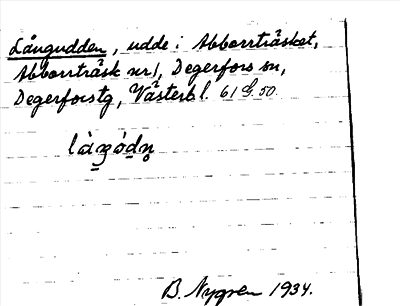 Långudden, udde i Abborrträsket,
Abborrträsk nr 1, Degerfors sn,
Degerforstg, Västerb l. 61 G. 50.
B. Nygren 1934.